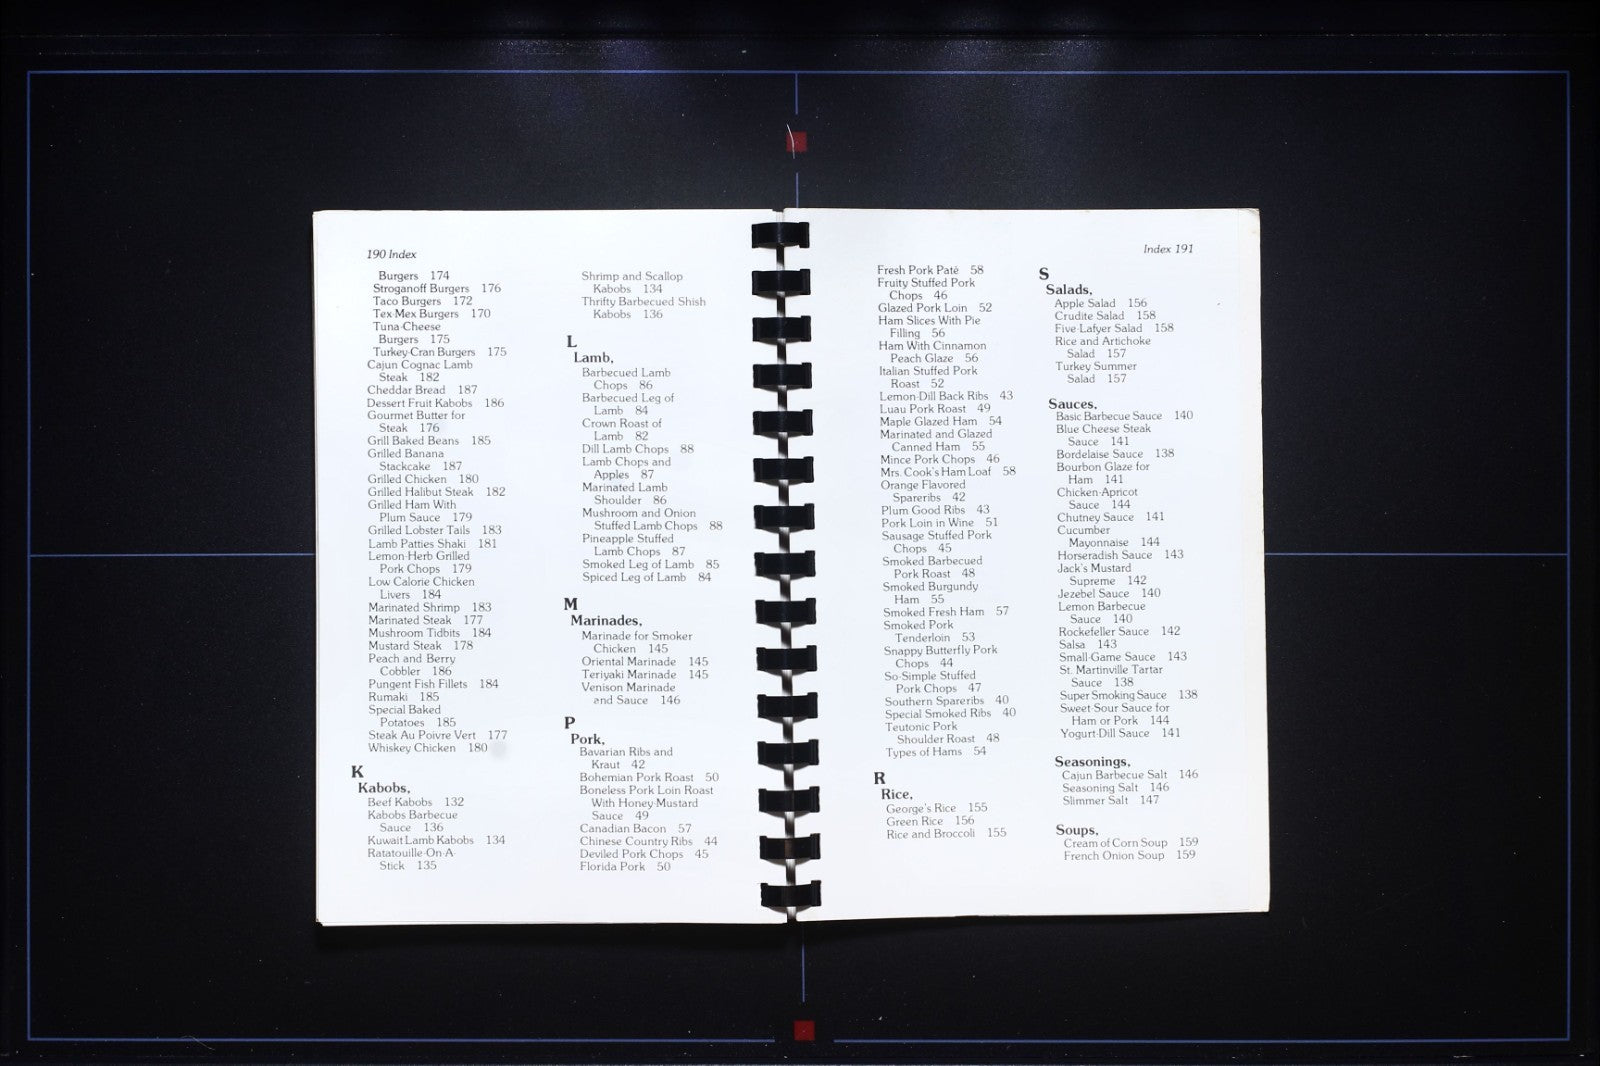 190 Index
Burgers 174
Stroganoff Burgers 176
Taco Burgers 172
Tex-Mex Burgers 170
Tuna-Cheese
Burgers 175
Turkey-Cran Burgers 175
Cajun Cognac Lamb
Steak 182
Cheddar Bread 187
Dessert Fruit Kabobs 186
Gourmet Butter for
Steak 176
Grill Baked Beans 185
Grilled Banana
Stackcake 187
Grilled Chicken 180
Grilled Halibut Steak 182
Grilled Ham With
Plum Sauce 179
Grilled Lobster Tails 183
Lamb Patties Shaki 181
Lemon-Herb Grilled
Pork Chops 179
Low Calorie Chicken
Livers 184
Marinated Shrimp 183
Marinated Steak 177
Mushroom Tidbits 184
Mustard Steak 178
Peach and Berry
Cobbler 186
Pungent Fish Fillets 184
Rumaki 185
Special Baked
Potatoes 185
Steak Au Poivre Vert 177
Whiskey Chicken 180
K
Kabobs,
Beef Kabobs 132
Kabobs Barbecue
Sauce 136
Kuwait Lamb Kabobs 134
Ratatouille-On-A-
Stick 135
Shrimp and Scallop
Kabobs 134
Thrifty Barbecued Shish
Kabobs 136
L
Lamb,
Barbecued Lamb
Chops 86
Barbecued Leg of
Lamb 84
Crown Roast of
Lamb 82
Dill Lamb Chops 88
Lamb Chops and
Apples 87
Marinated Lamb
Shoulder 86
Mushroom and Onion
Stuffed Lamb Chops 88
Pineapple Stuffed
Lamb Chops 87
Smoked Leg of Lamb 85
Spiced Leg of Lamb 84
M
Marinades,
Marinade for Smoker
Chicken 145
Oriental Marinade 145
Teriyaki Marinade 145
Venison Marinade
and Sauce 146
P
Pork,
Bavarian Ribs and
Kraut 42
Bohemian Pork Roast 50
Boneless Pork Loin Roast
With Honey-Mustard
Sauce 49
Canadian Bacon 57
Chinese Country Ribs 44
Deviled Pork Chops 45
Florida Pork 50
Index 191
Fresh Pork Paté 58
Fruity Stuffed Pork
Chops 46
Glazed Pork Loin 52
Ham Slices With Pie
Filling 56
Ham With Cinnamon
Peach Glaze 56
Italian Stuffed Pork
Roast 52
Lemon-Dill Back Ribs 43
Luau Pork Roast 49
Maple Glazed Ham 54
Marinated and Glazed
Canned Ham 55
Mince Pork Chops 46
Mrs. Cook's Ham Loaf 58
Orange Flavored
Spareribs 42
Plum Good Ribs 43
Pork Loin in Wine 51
Sausage Stuffed Pork
Chops 45
Smoked Barbecued
Pork Roast 48
Smoked Burgundy
Ham 55
Smoked Fresh Ham 57
Smoked Pork
Tenderloin 53
Snappy Butterfly Pork
Chops 44
So-Simple Stuffed
Pork Chops 47
Southern Spareribs 40
Special Smoked Ribs 40
Teutonic Pork
Shoulder Roast 48
Types of Hams 54
R
Rice,
George's Rice 155
Green Rice 156
Rice and Broccoli 155
S
Salads,
Apple Salad 156
Crudite Salad 158
Five-Lafyer Salad 158
Rice and Artichoke
Salad 157
Turkey Summer
Salad 157
Sauces,
Basic Barbecue Sauce 140
Blue Cheese Steak
Sauce 141
Bordelaise Sauce 138
Bourbon Glaze for
Ham 141
Chicken-Apricot
Sauce 144
Chutney Sauce 141
Cucumber
Mayonnaise 144
Horseradish Sauce 143
Jack's Mustard
Supreme 142
Jezebel Sauce 140
Lemon Barbecue
Sauce 140
Rockefeller Sauce 142
Salsa 143
Small-Game Sauce 143
St. Martinville Tartar
Sauce 138
Super Smoking Sauce 138
Sweet-Sour Sauce for
Ham or Pork 144
Yogurt-Dill Sauce 141
Seasonings,
Cajun Barbecue Salt 146
Seasoning Salt 146
Slimmer Salt 147
Soups,
Cream of Corn Soup 159
French Onion Soup 159